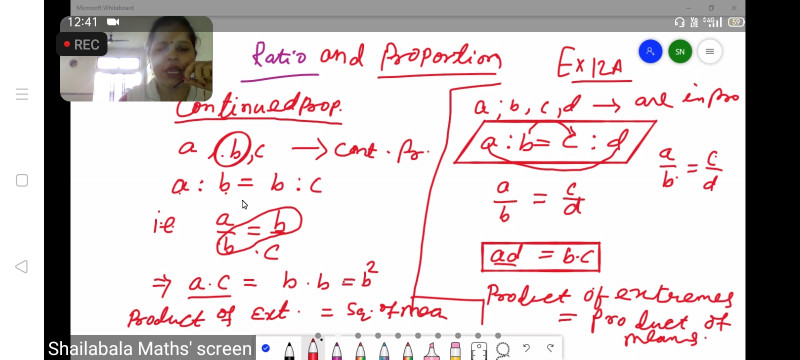 Microsoft Whiteboard
12:41
59
REC
Ratio and Proportion
Ex 12A
SN
Continued prop.
a, b, c → cont. Pr.
a : b = b : c
i.e a/b = b/c
⇒ a.c = b.b = b²
Product of Ext. = Sq. of mea
a, b, c, d → are in pro
a : b = c : d
a/b = c/d
a/b = c/d
ad = b.c
Product of extremes
= Product of
means.
Shailabala Maths' screen